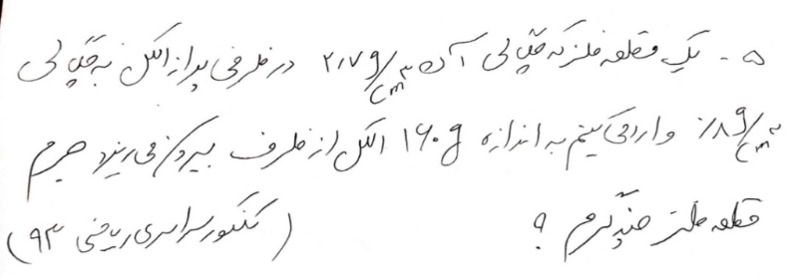 ۵ - یک قطعه فلز که چگالی آن ۲٫۷ g/cm³ در ظرفی پر از الکل به چگالی
۰٫۸ g/cm³ وارد می‌کنیم به اندازه ۱۶۰ g الکل از ظرف بیرون می‌ریزد جرم
قطعه فلز چند گرم ؟ (کنکور سراسری ریاضی ۹۳)